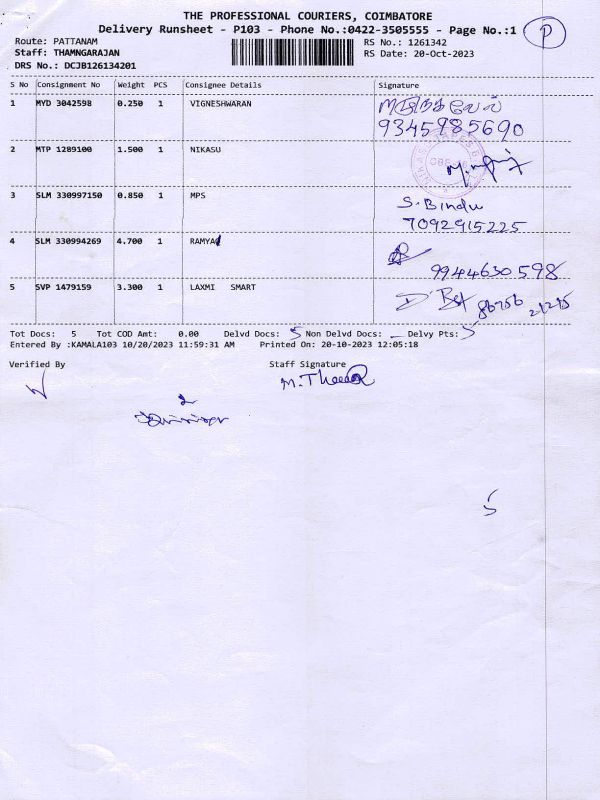 THE PROFESSIONAL COURIERS, COIMBATORE
Delivery Runsheet - P103 - Phone No.:0422-3505555 - Page No.:1 P
Route: PATTANAM RS No.: 1261342
Staff: THAMNGARAJAN RS Date: 20-Oct-2023
DRS No.: DCJB126134201
S No Consignment No Weight PCS Consignee Details Signature
1 MYD 3042598 0.250 1 VIGNESHWARAN
9345985690
2 MTP 1289100 1.500 1 NIKASU
3 SLM 330997150 0.850 1 MPS S. Bindu
7092915225
4 SLM 330994269 4.700 1 RAMYA
9944630598
5 SVP 1479159 3.300 1 LAXMI SMART
Tot Docs: 5 Tot COD Amt: 0.00 Delvd Docs: 5 Non Delvd Docs: _ Delvy Pts: 5
Entered By :KAMALA103 10/20/2023 11:59:31 AM Printed On: 20-10-2023 12:05:18
Verified By Staff Signature
5